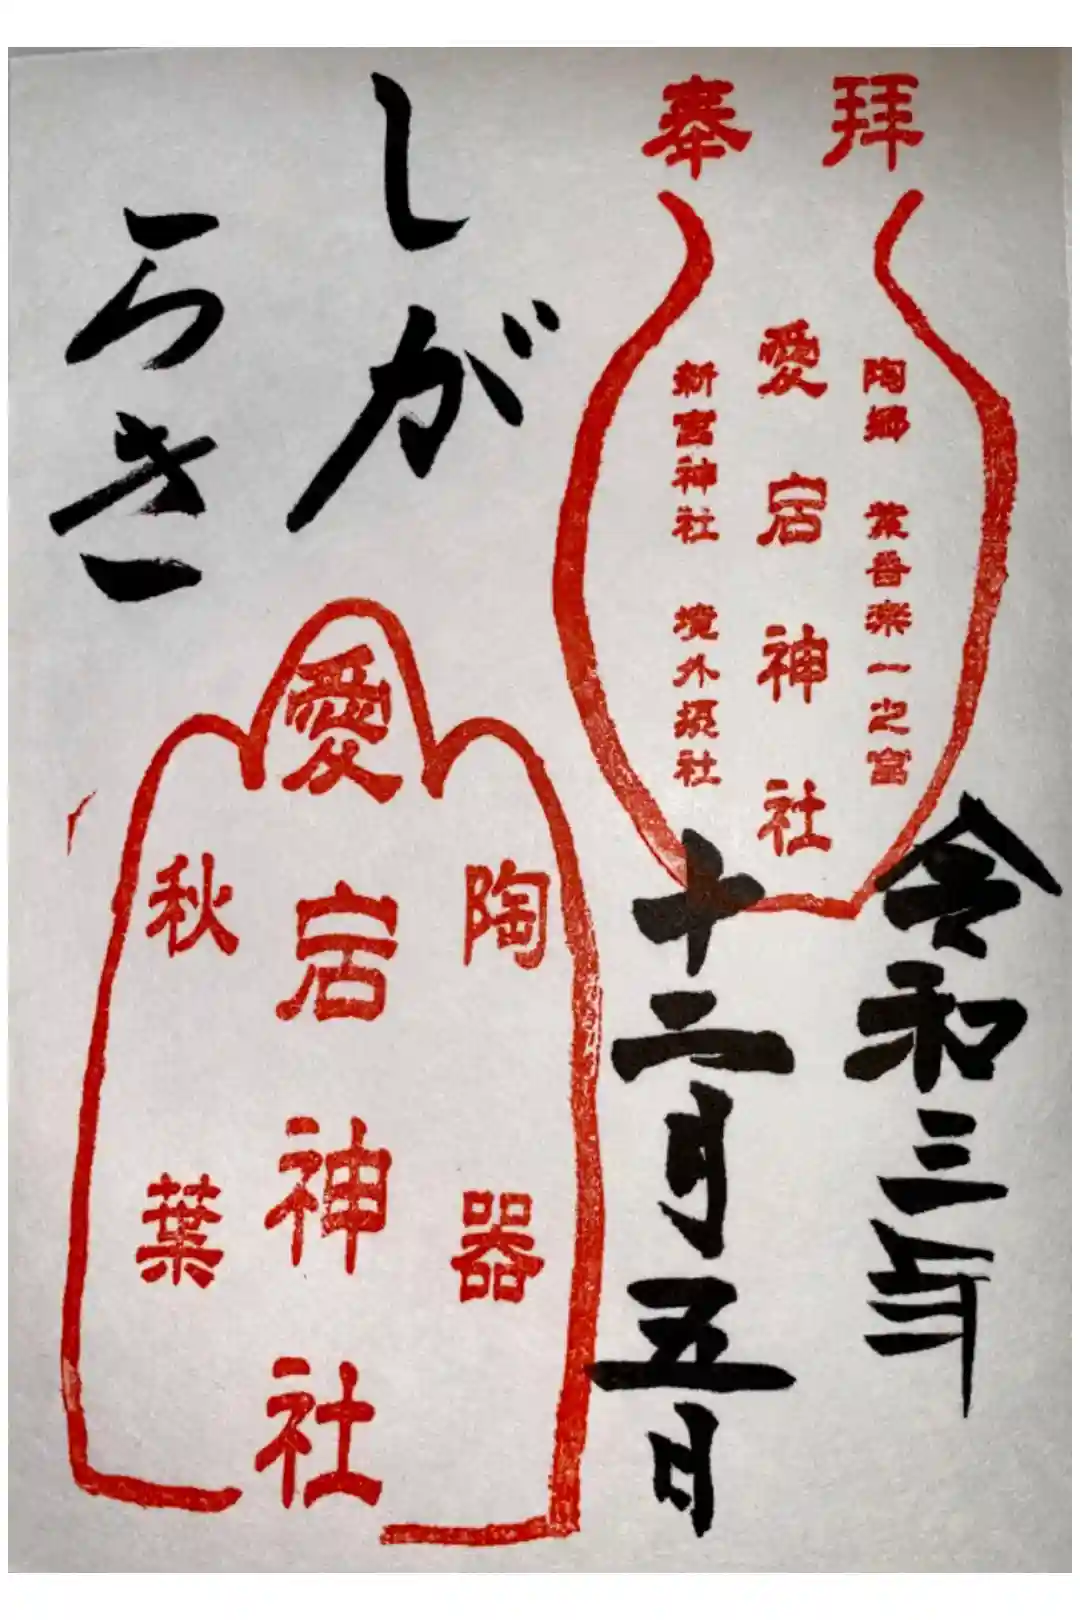 奉拝
陶郷 紫香楽一之宮
愛宕神社
新宮神社 境外摂社
令和三年
十二月五日
しが
らき
陶器
愛宕神社
秋葉